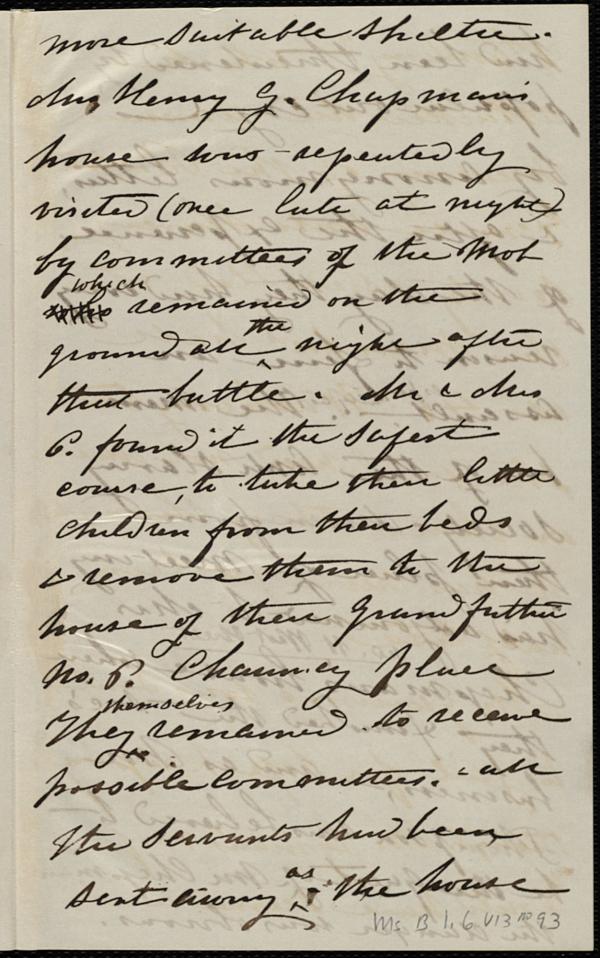 more suitable shelter.
Mrs Henry G. Chapman's
house was repeatedly
visited (once late at night)
by committees of the Mob
which
remained on the
the
ground all night after
that battle. Mr & Mrs
C. found it the safest
course, to take their little
children from their beds
& remove them to the
house of their Grandfather
No. Chauncy place
themselves
They remained to receive
possible committees. all
the servants had been
sent away as the house
Ms B 1.6 v13 no 93